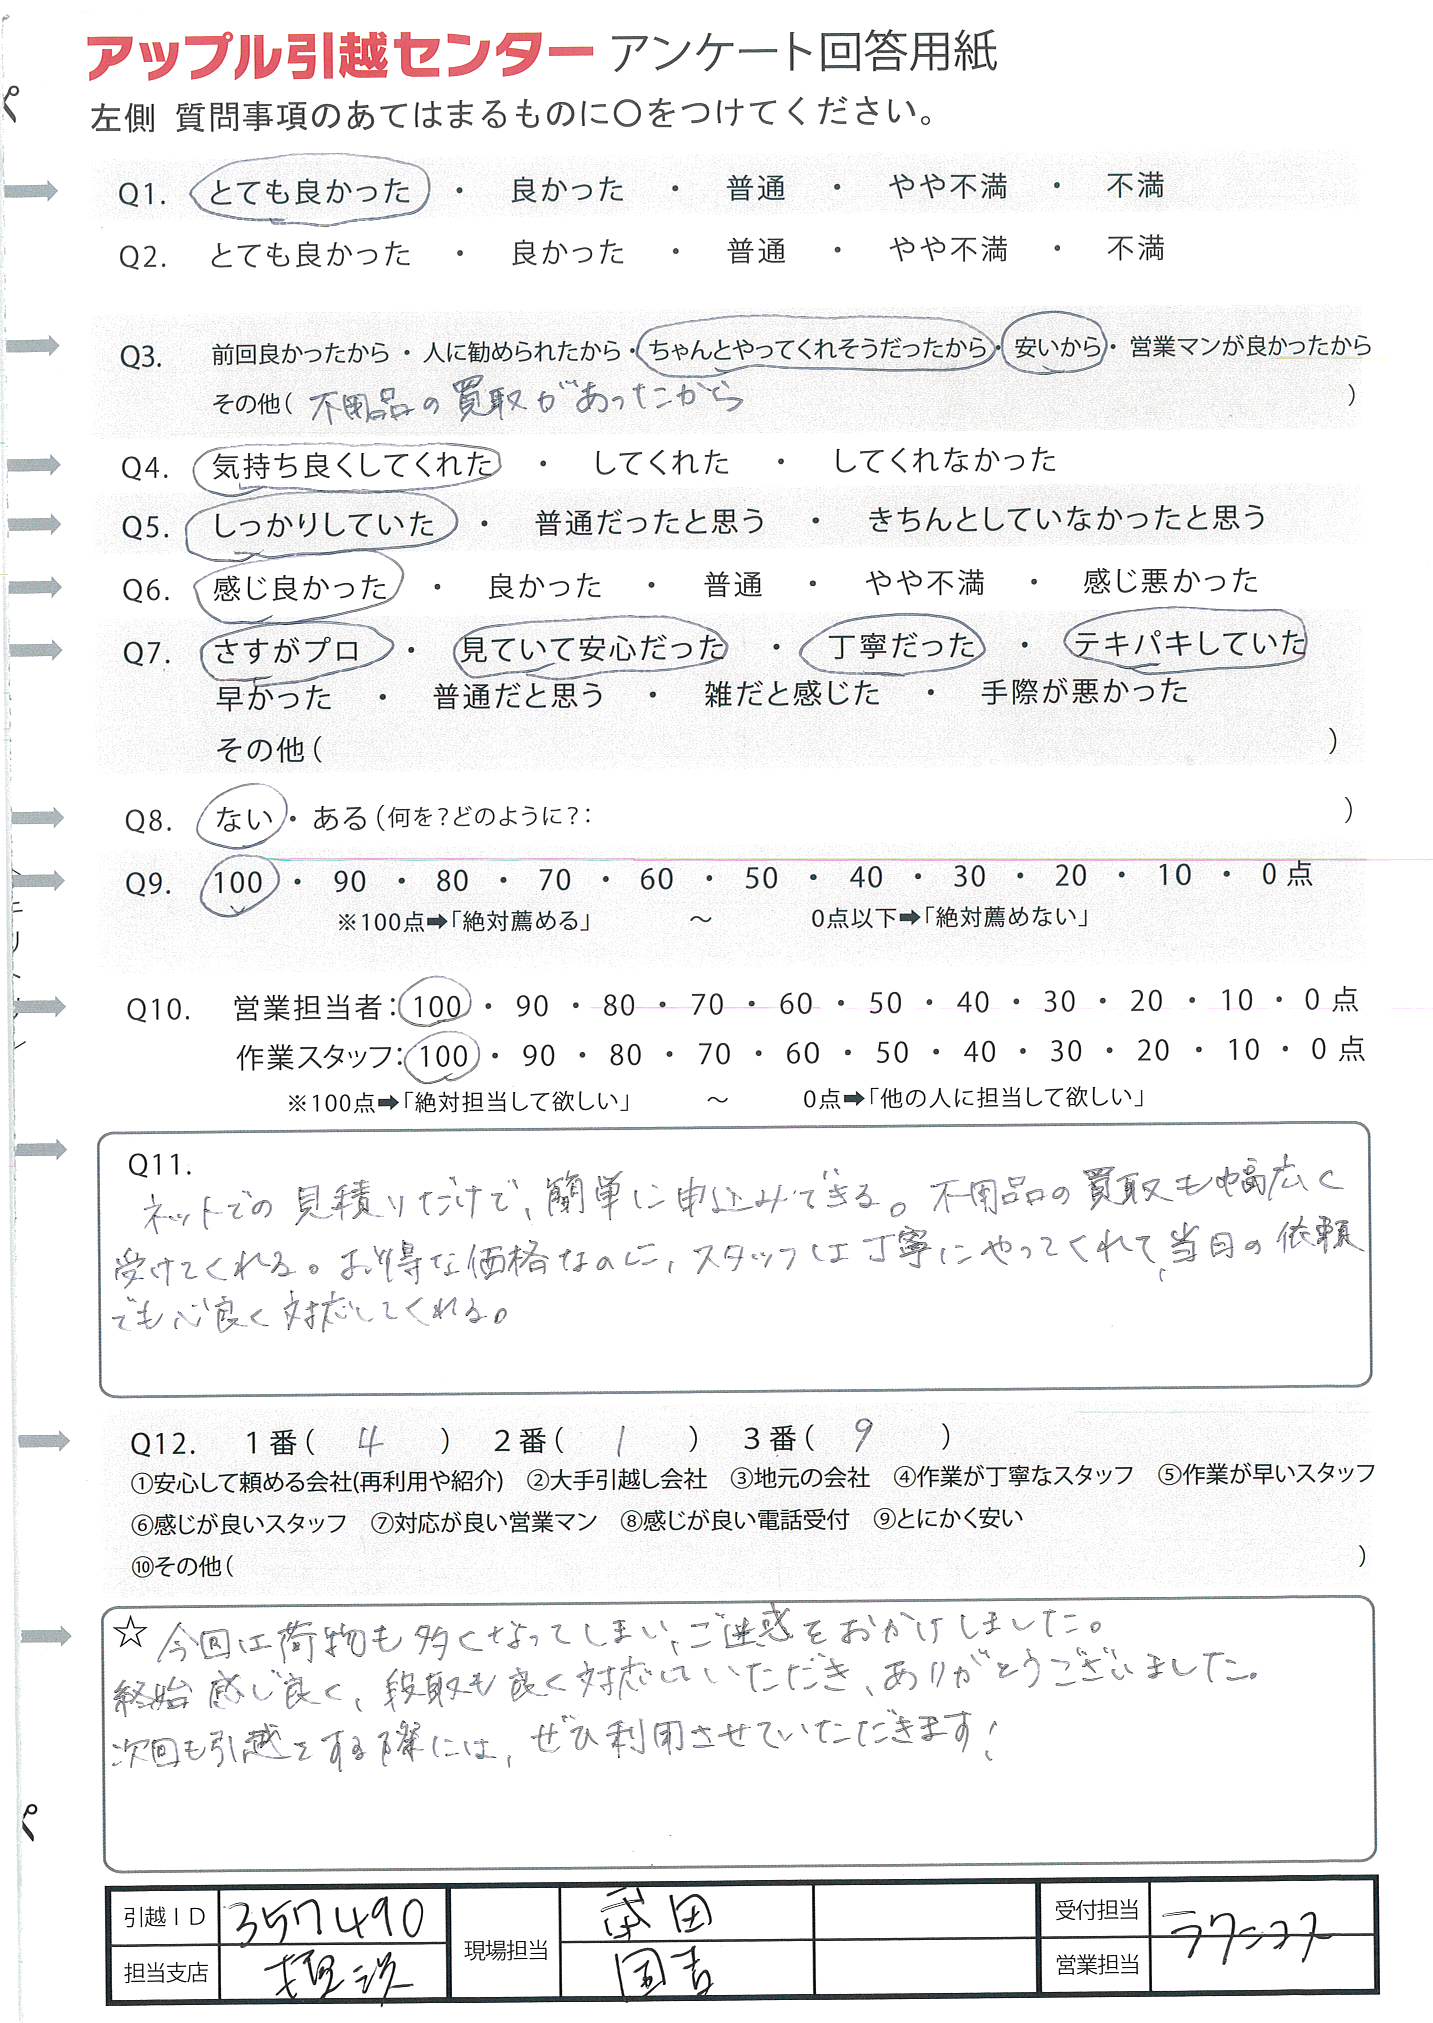 アップル引越センター アンケート回答用紙
左側 質問事項のあてはまるものに〇をつけてください。
Q1. とても良かった ・ 良かった ・ 普通 ・ やや不満 ・ 不満
Q2. とても良かった ・ 良かった ・ 普通 ・ やや不満 ・ 不満
Q3. 前回良かったから・人に勧められたから・ちゃんとやってくれそうだったから・安いから・営業マンが良かったから
その他( 不用品の買取があったから )
Q4. 気持ち良くしてくれた ・ してくれた ・ してくれなかった
Q5. しっかりしていた ・ 普通だったと思う ・ きちんとしていなかったと思う
Q6. 感じ良かった ・ 良かった ・ 普通 ・ やや不満 ・ 感じ悪かった
Q7. さすがプロ ・ 見ていて安心だった ・ 丁寧だった ・ テキパキしていた
早かった ・ 普通だと思う ・ 雑だと感じた ・ 手際が悪かった
その他( )
Q8. ない・ある(何を?どのように?: )
Q9. 100 ・ 90 ・ 80 ・ 70 ・ 60 ・ 50 ・ 40 ・ 30 ・ 20 ・ 10 ・ 0点
※100点➡「絶対薦める」 ～ 0点以下➡「絶対薦めない」
Q10. 営業担当者:100 ・ 90 ・ 80 ・ 70 ・ 60 ・ 50 ・ 40 ・ 30 ・ 20 ・ 10 ・ 0点
作業スタッフ:100 ・ 90 ・ 80 ・ 70 ・ 60 ・ 50 ・ 40 ・ 30 ・ 20 ・ 10 ・ 0点
※100点➡「絶対担当して欲しい」 ～ 0点➡「他の人に担当して欲しい」
Q11.
ネットでの見積りだけで、簡単に申込みできる。不用品の買取も幅広く
受けてくれる。お得な価格なのに、スタッフは丁寧にやってくれて、当日の依頼
でも心良く対応してくれる。
Q12. 1番( 4 ) 2番( 1 ) 3番( 9 )
①安心して頼める会社(再利用や紹介) ②大手引越し会社 ③地元の会社 ④作業が丁寧なスタッフ ⑤作業が早いスタッフ
⑥感じが良いスタッフ ⑦対応が良い営業マン ⑧感じが良い電話受付 ⑨とにかく安い
⑩その他( )
☆ 今回は荷物も多くなってしまい、ご迷惑をおかけしました。
終始感じ良く、段取も良く対応していただき、ありがとうございました。
次回も引越をする際には、ぜひ利用させていただきます!
引越ID 357490 現場担当 武田 受付担当 ラクニコス
担当支店 国吉 営業担当